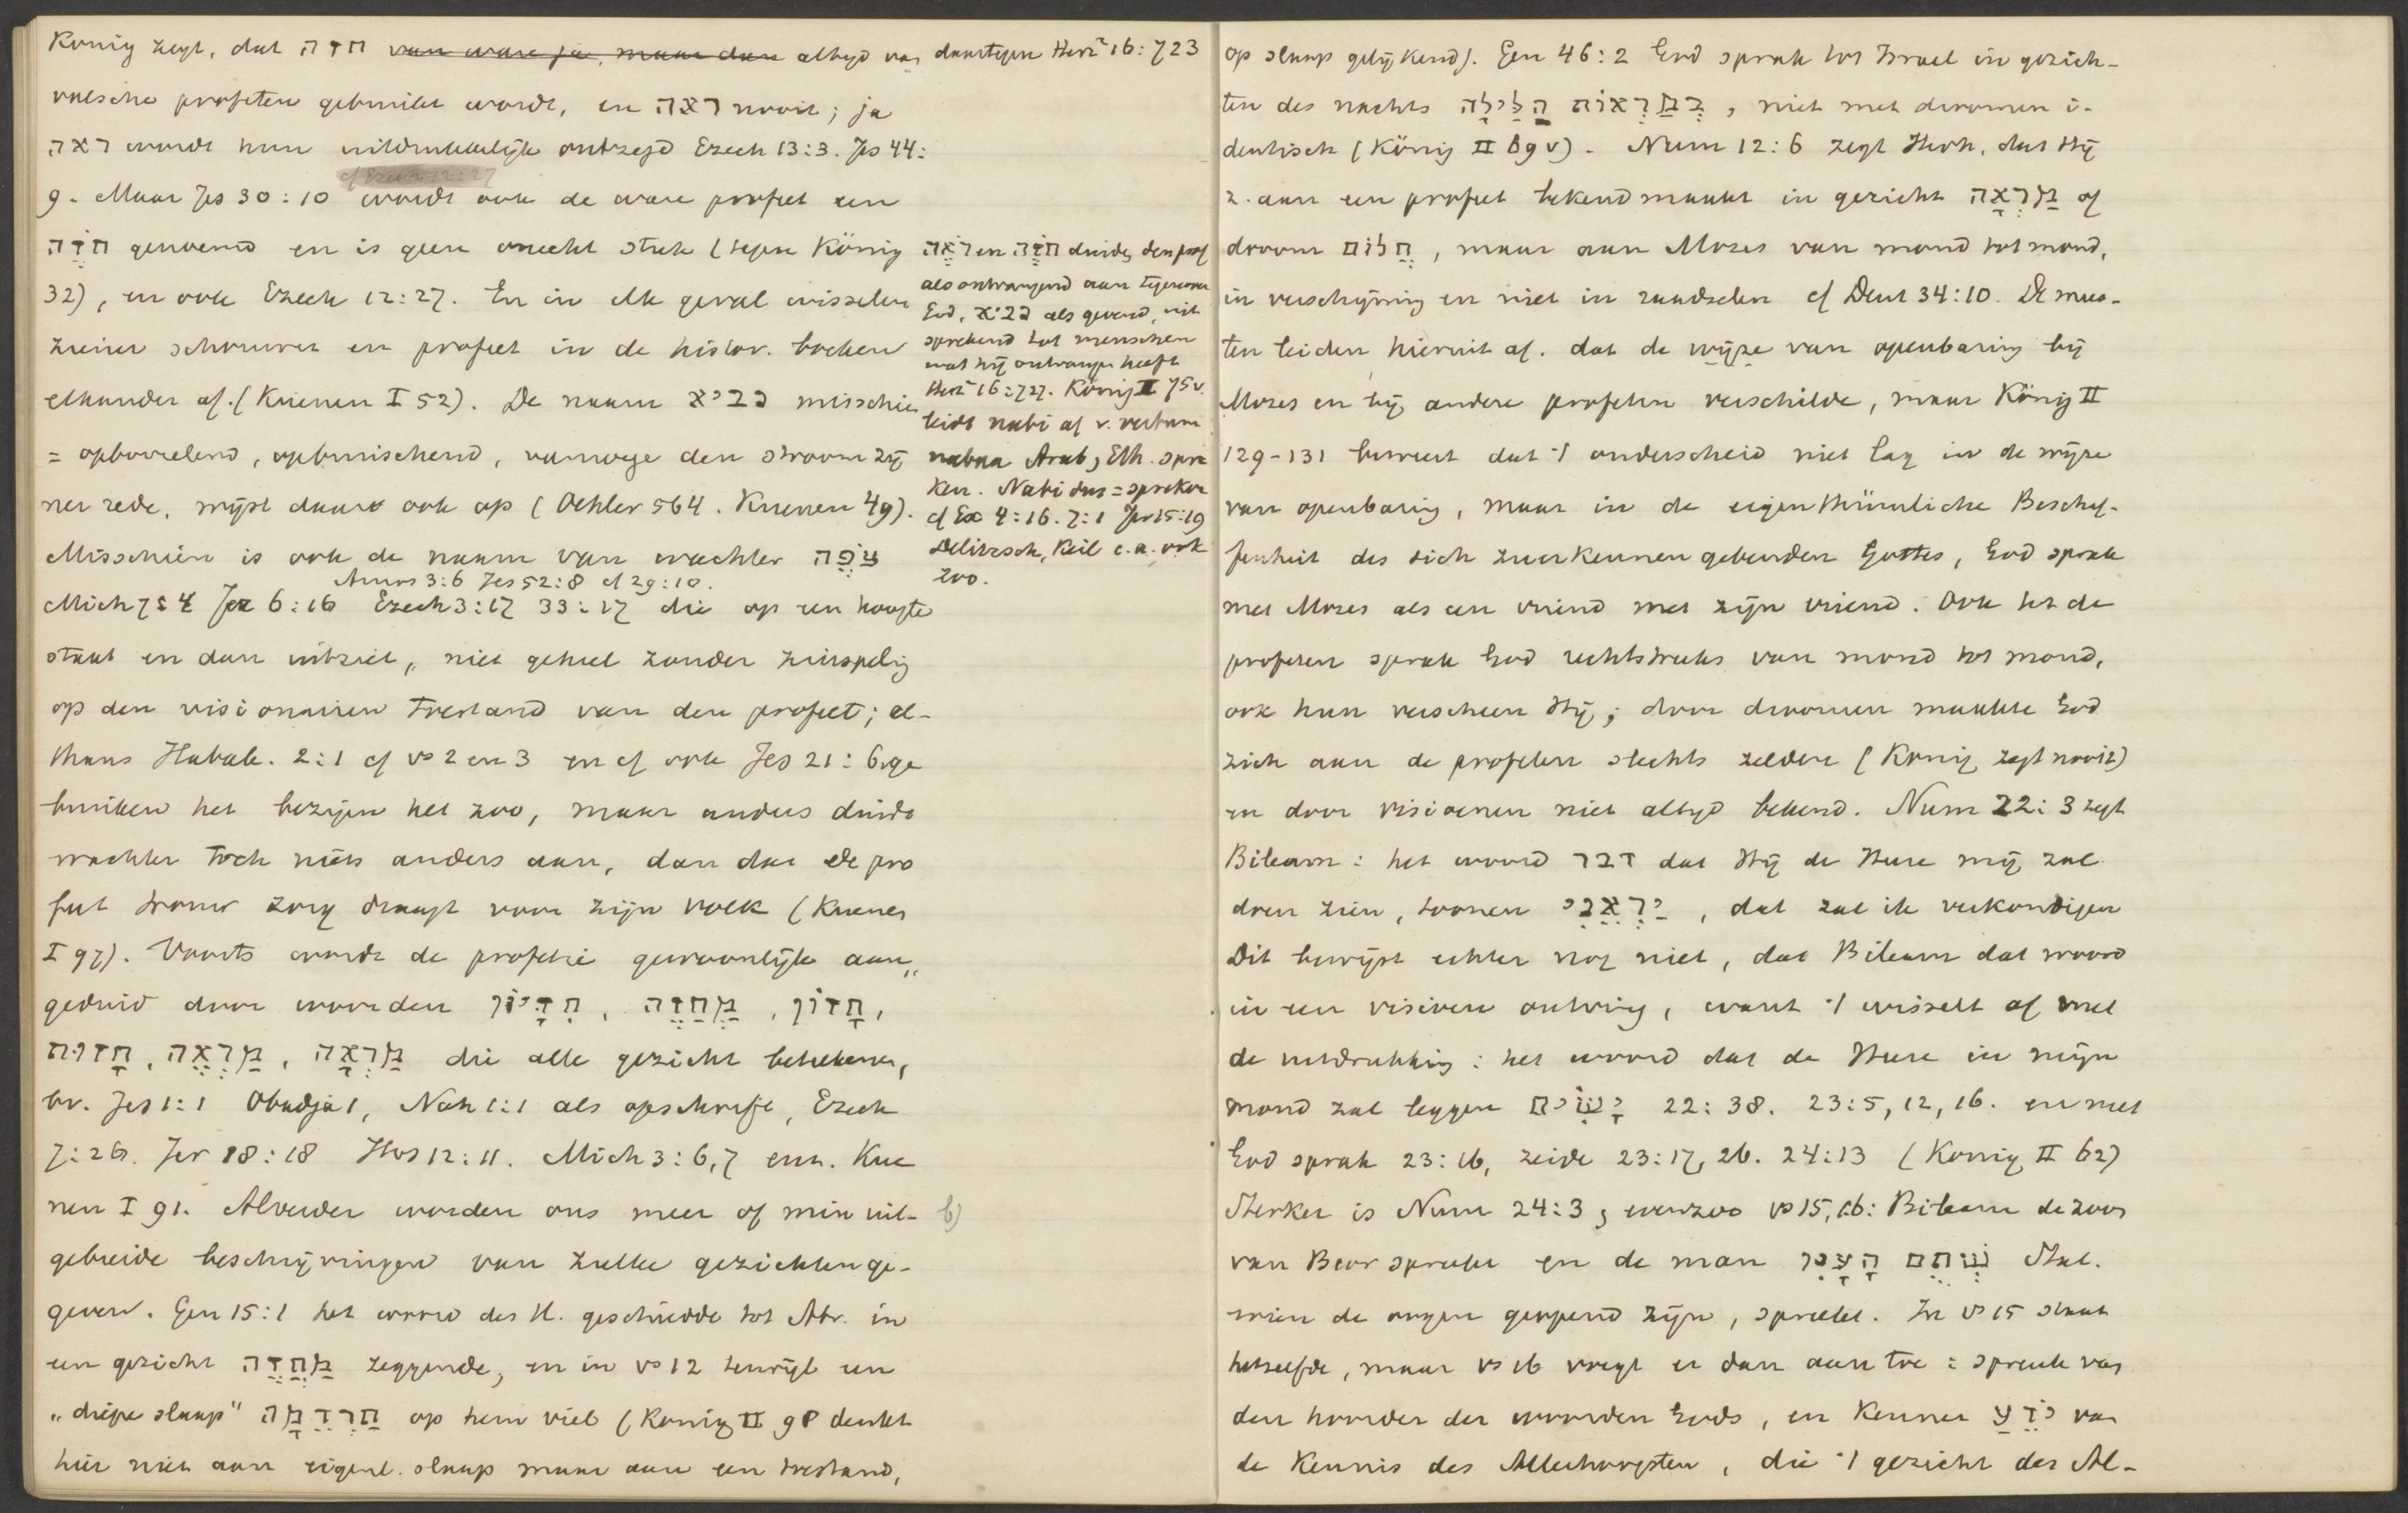 König zegt, dat חזה van ware ja, maar dan altyd van
valsche profeten gebruikt wordt, en ראה nooit; ja
ראה wordt hun uitdrukkelijk ontzegd Ezech 13:3. Jes 44:
cf Ezech 12:27
9. Maar Jes 30:10 wordt ook de ware profeet een
חֹזֶה genoemd en is geen onecht stuk (tegen König
32), en ook Ezech 12:27. En in elk geval wisselen
ziener schouwer en profeet in de histor. boeken
elkander af. (Kuenen I 52). De naam נביא misschien
= opborrelend, opbruischend, vanwege den stroom zij
ner rede, wijst daar ook op (Oehler 564. Kuenen 49).
Misschien is ook de naam van wachter צֹפֶה
Amos 3:6 Jes 52:8 cf 29:10.
Mich 7:4 Jer 6:16 Ezech 3:17 33:17 die op een hoogte
staat en dan uitziet, niet geheel zonder zinspeling
op den visionairen toestand van den profeet; al-
thans Habak. 2:1 cf vs 2 en 3 en cf ook Jes 21:6. ge
bruiken het bezijen het zoo, maar anders duidt
wachter toch niets anders aan, dan dat de pro
feet trouw zorg draagt voor zijn volk (Kuenen
I 97). Voorts wordt de profetie gewoonlijk aan„
geduid door woorden חִזָּיוֹן, מַחֲזֶה, חָזוֹן,
חָזוּת, מַרְאֶה, מַרְאָה die alle gezicht beteekenen,
bv. Jes 1:1 Obadja 1, Nah 1:1 als opschrift, Ezech
7:26. Jer 18:18 Hos 12:11. Mich 3:6,7 enz. Kue
nen I 91. Alverder worden ons meer of min uit-
gebreide beschrijvingen van zulke gezichten ge-
geven. Gen 15:1 het woord des H. geschiedde tot Abr. in
een gezicht מַחֲזֶה zeggende, en in vs 12 terwijl een
„diepe slaap" תַּרְדֵּמָה op hem viel (König II 98 denkt
hier niet aan eigenl. slaap maar aan een toestand,
daartegen Herz² 16:723
רֹאֶה en חֹזֶה duiden den prof
als ontvangend aan tegenover
God, נביא als gevend, uit
sprekend tot menschen
wat hij ontvangen heeft
Herz² 16:727. König II 75 v.
leidt nabi af v. verbum
nabaa Arab, Eth. spre
ken. Nabi dus = spreker
cf Ex 4:16. 7:1 Jer 15:19
Delitzsch, Keil e.a. ook
zoo.
b)
op slaap gelijkend). Gen 46:2 God sprak tot Israel in gezich-
ten des nachts בְּמַרְאוֹת הַלַּיְלָה, niet met droomen i-
dentisch (König II 69 v). Num 12:6 zegt Jhvh, dat Hij
z. aan een profeet bekend maakt in gezicht מַרְאָה of
droom חֲלוֹם, maar aan Mozes van mond tot mond,
in verschijning en niet in raadselen cf Deut 34:10. De mees-
ten leiden hieruit af. dat de wijze van openbaring bij
Mozes en bij andere profeten verschilde, maar König II
129-131 beweert dat 't onderscheid niet lag in de wijze
van openbaring, maar in de eigenthümliche Beschaf-
fenheit des sich zuerkennen gebenden Gottes, God sprak
met Mozes als een vriend met zijn vriend. Ook tot de
profeten sprak God rechtstreeks van mond tot mond,
ook hun verscheen Hij; door droomen maakte God
zich aan de profeten slechts zelden (König zegt nooit)
en door visioenen niet altyd bekend. Num 22:3 zegt
Bileam: het woord דבר dat Hij de Heere mij zal
doen zien, toonen יַרְאֵנִי, dat zal ik verkondigen
Dit bewijst echter nog niet, dat Bileam dat woord
in een visioen ontving, want 't wisselt af met
de uitdrukking: het woord dat de Heere in mijn
mond zal leggen יָשִׂים 22:38. 23:5,12,16. en met
God sprak 23:16, zeide 23:17, 26. 24:13 (König II 62)
Sterker is Num 24:3, evenzoo vs 15,16: Bileam de zoon
van Beor spreekt en de man שְׁתֻם הָעָיִן Stat.
wien de oogen geopend zijn, spreekt. In vs 15 staat
hetzelfde, maar vs 16 voegt er dan aan toe: spreuk van
den hoorder der woorden Gods, en Kenner יֹדֵעַ van
de Kennis des Allerhoogsten, die 't gezicht des Al-